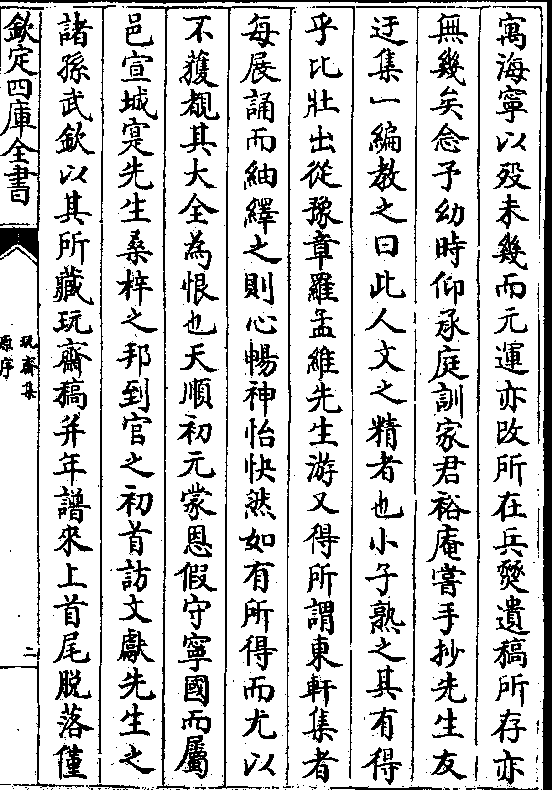 寓海寧以歿未幾而元運亦改所在兵燹遺稿所存亦
無幾矣念予幼時仰承庭訓家君裕庵嘗手抄先生友
迂集一編教之曰此人文之精者也小子熟之其有得
乎比壯出從豫章羅孟維先生游又得所謂東軒集者
每展誦而紬繹之則心暢神怡快然如有所得而尤以
不獲覩其大全為恨也天順初元蒙恩假守寧國而屬
邑宣城寔先生桑梓之邦到官之初首訪文獻先生之
諸孫武欽以其所藏玩齋稿并年譜來上首尾脫落僅
欽定四庫全書
玩齋集
原序
二